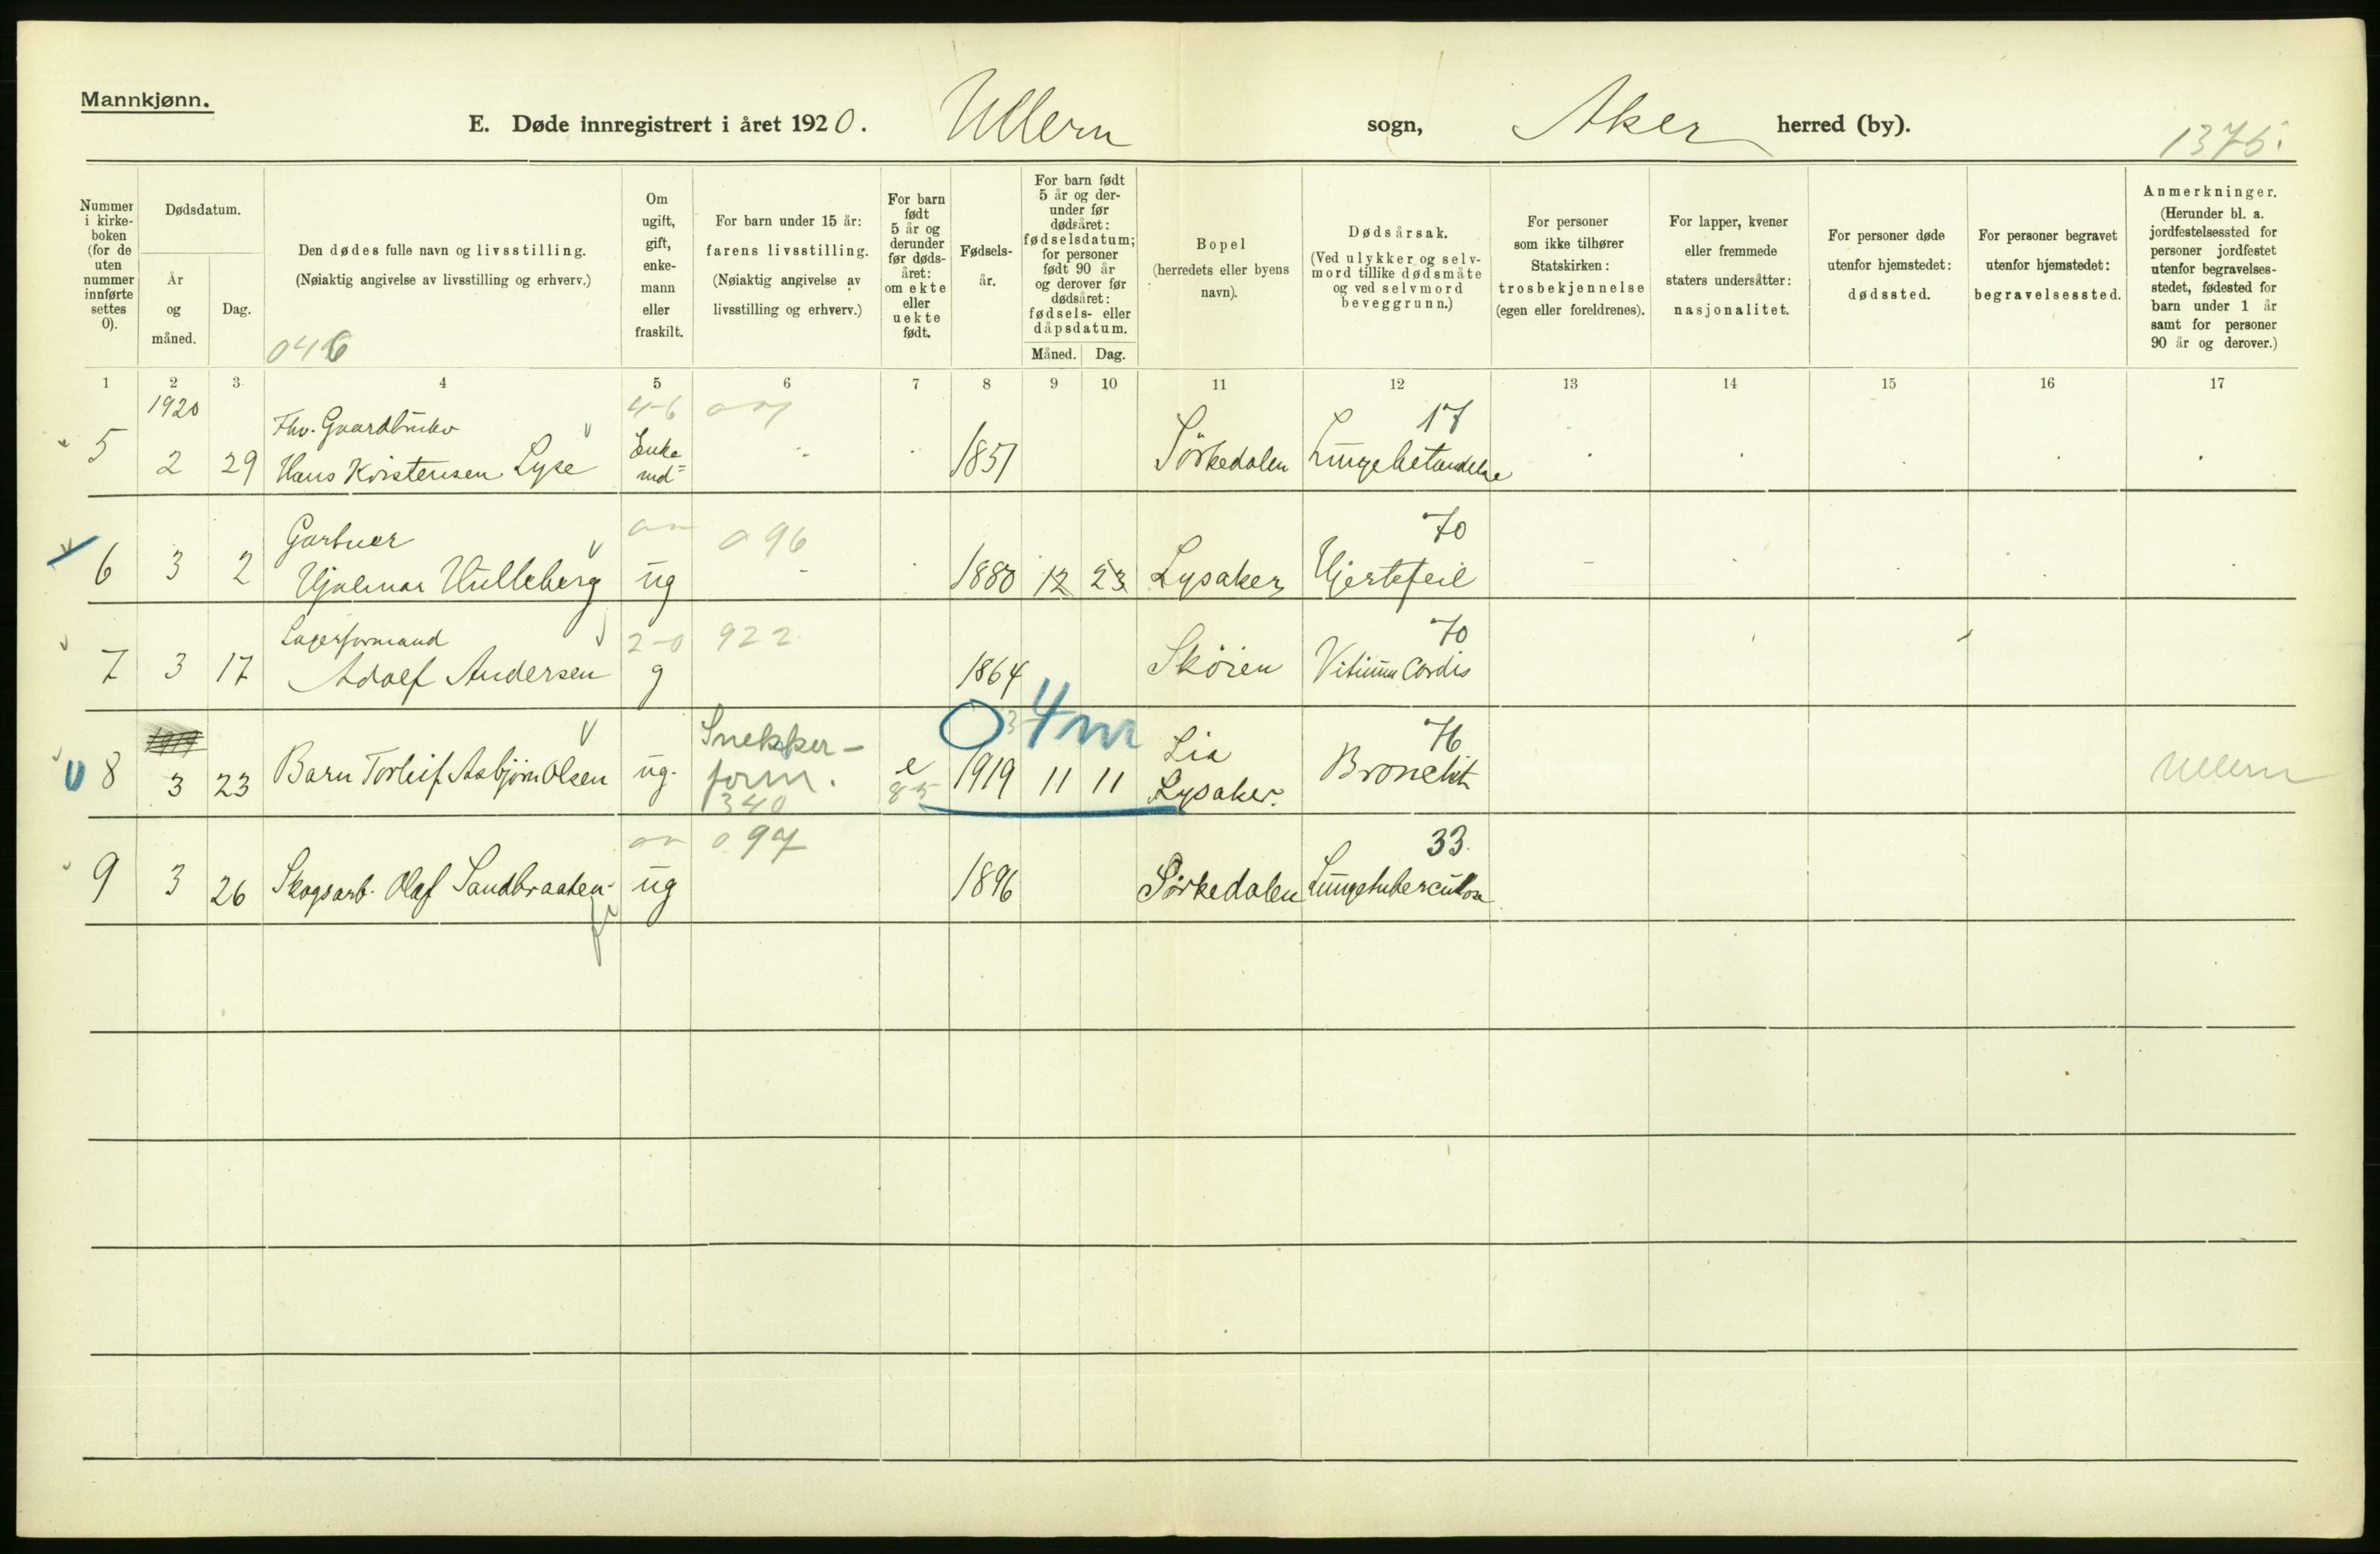 Mannkjønn.
E. Døde innregistrert i året 1920. Ullern sogn, Aker herred (by). 1375.
Nummer i kirke-boken (for de uten nummer innførte settes 0).
Dødsdatum.
År og måned.
Dag.
Den dødes fulle navn og livsstilling.
(Nøiaktig angivelse av livsstilling og erhverv.)
046
Om ugift, gift, enke-mann eller fraskilt.
For barn under 15 år:
farens livsstilling.
(Nøiaktig angivelse av livsstilling og erhverv.)
For barn født 5 år og derunder før døds-året: om ekte eller uekte født.
Fødsels-år.
For barn født 5 år og der-under før dødsåret: fødselsdatum; for personer født 90 år og derover før dødsåret: fødsels- eller dåpsdatum.
Måned. Dag.
Bopel
(herredets eller byens navn).
Dødsårsak.
(Ved ulykker og selv-mord tillike dødsmåte og ved selvmord beveggrunn.)
For personer som ikke tilhører Statskirken: trosbekjennelse (egen eller foreldrenes).
For lapper, kvener eller fremmede staters undersåtter: nasjonalitet.
For personer døde utenfor hjemstedet: dødssted.
For personer begravet utenfor hjemstedet: begravelsessted.
Anmerkninger.
(Herunder bl. a. jordfestelsessted for personer jordfestet utenfor begravelses-stedet, fødested for barn under 1 år samt for personer 90 år og derover.)
1 2 3 4 5 6 7 8 9 10 11 12 13 14 15 16 17
1920 Fhv. Gaardbruker 4-6 17
5 2 29 Hans Kristensen Lyse Enke md= 1851 Sörkedalen Lungebetændelse
Gartner 096 70
6 3 2 Hjalmar Hulleberg ug 1880 12 23 Lysaker Hjertefeil
Lagerformand 2-0 922 70
7 3 17 Adolf Andersen g 1864 Sköien Vitium Cordis
1919 Snekker- 0 4 m Lia 76
8 3 23 Barn Torleif Asbjørn Olsen ug. form. e 1919 11 11 Lysaker. Bronchit Ullern
340 85
097 33.
9 3 26 Skogsarb. Olaf Sandbraaten ug 1896 Sörkedalen Lungetuberculose